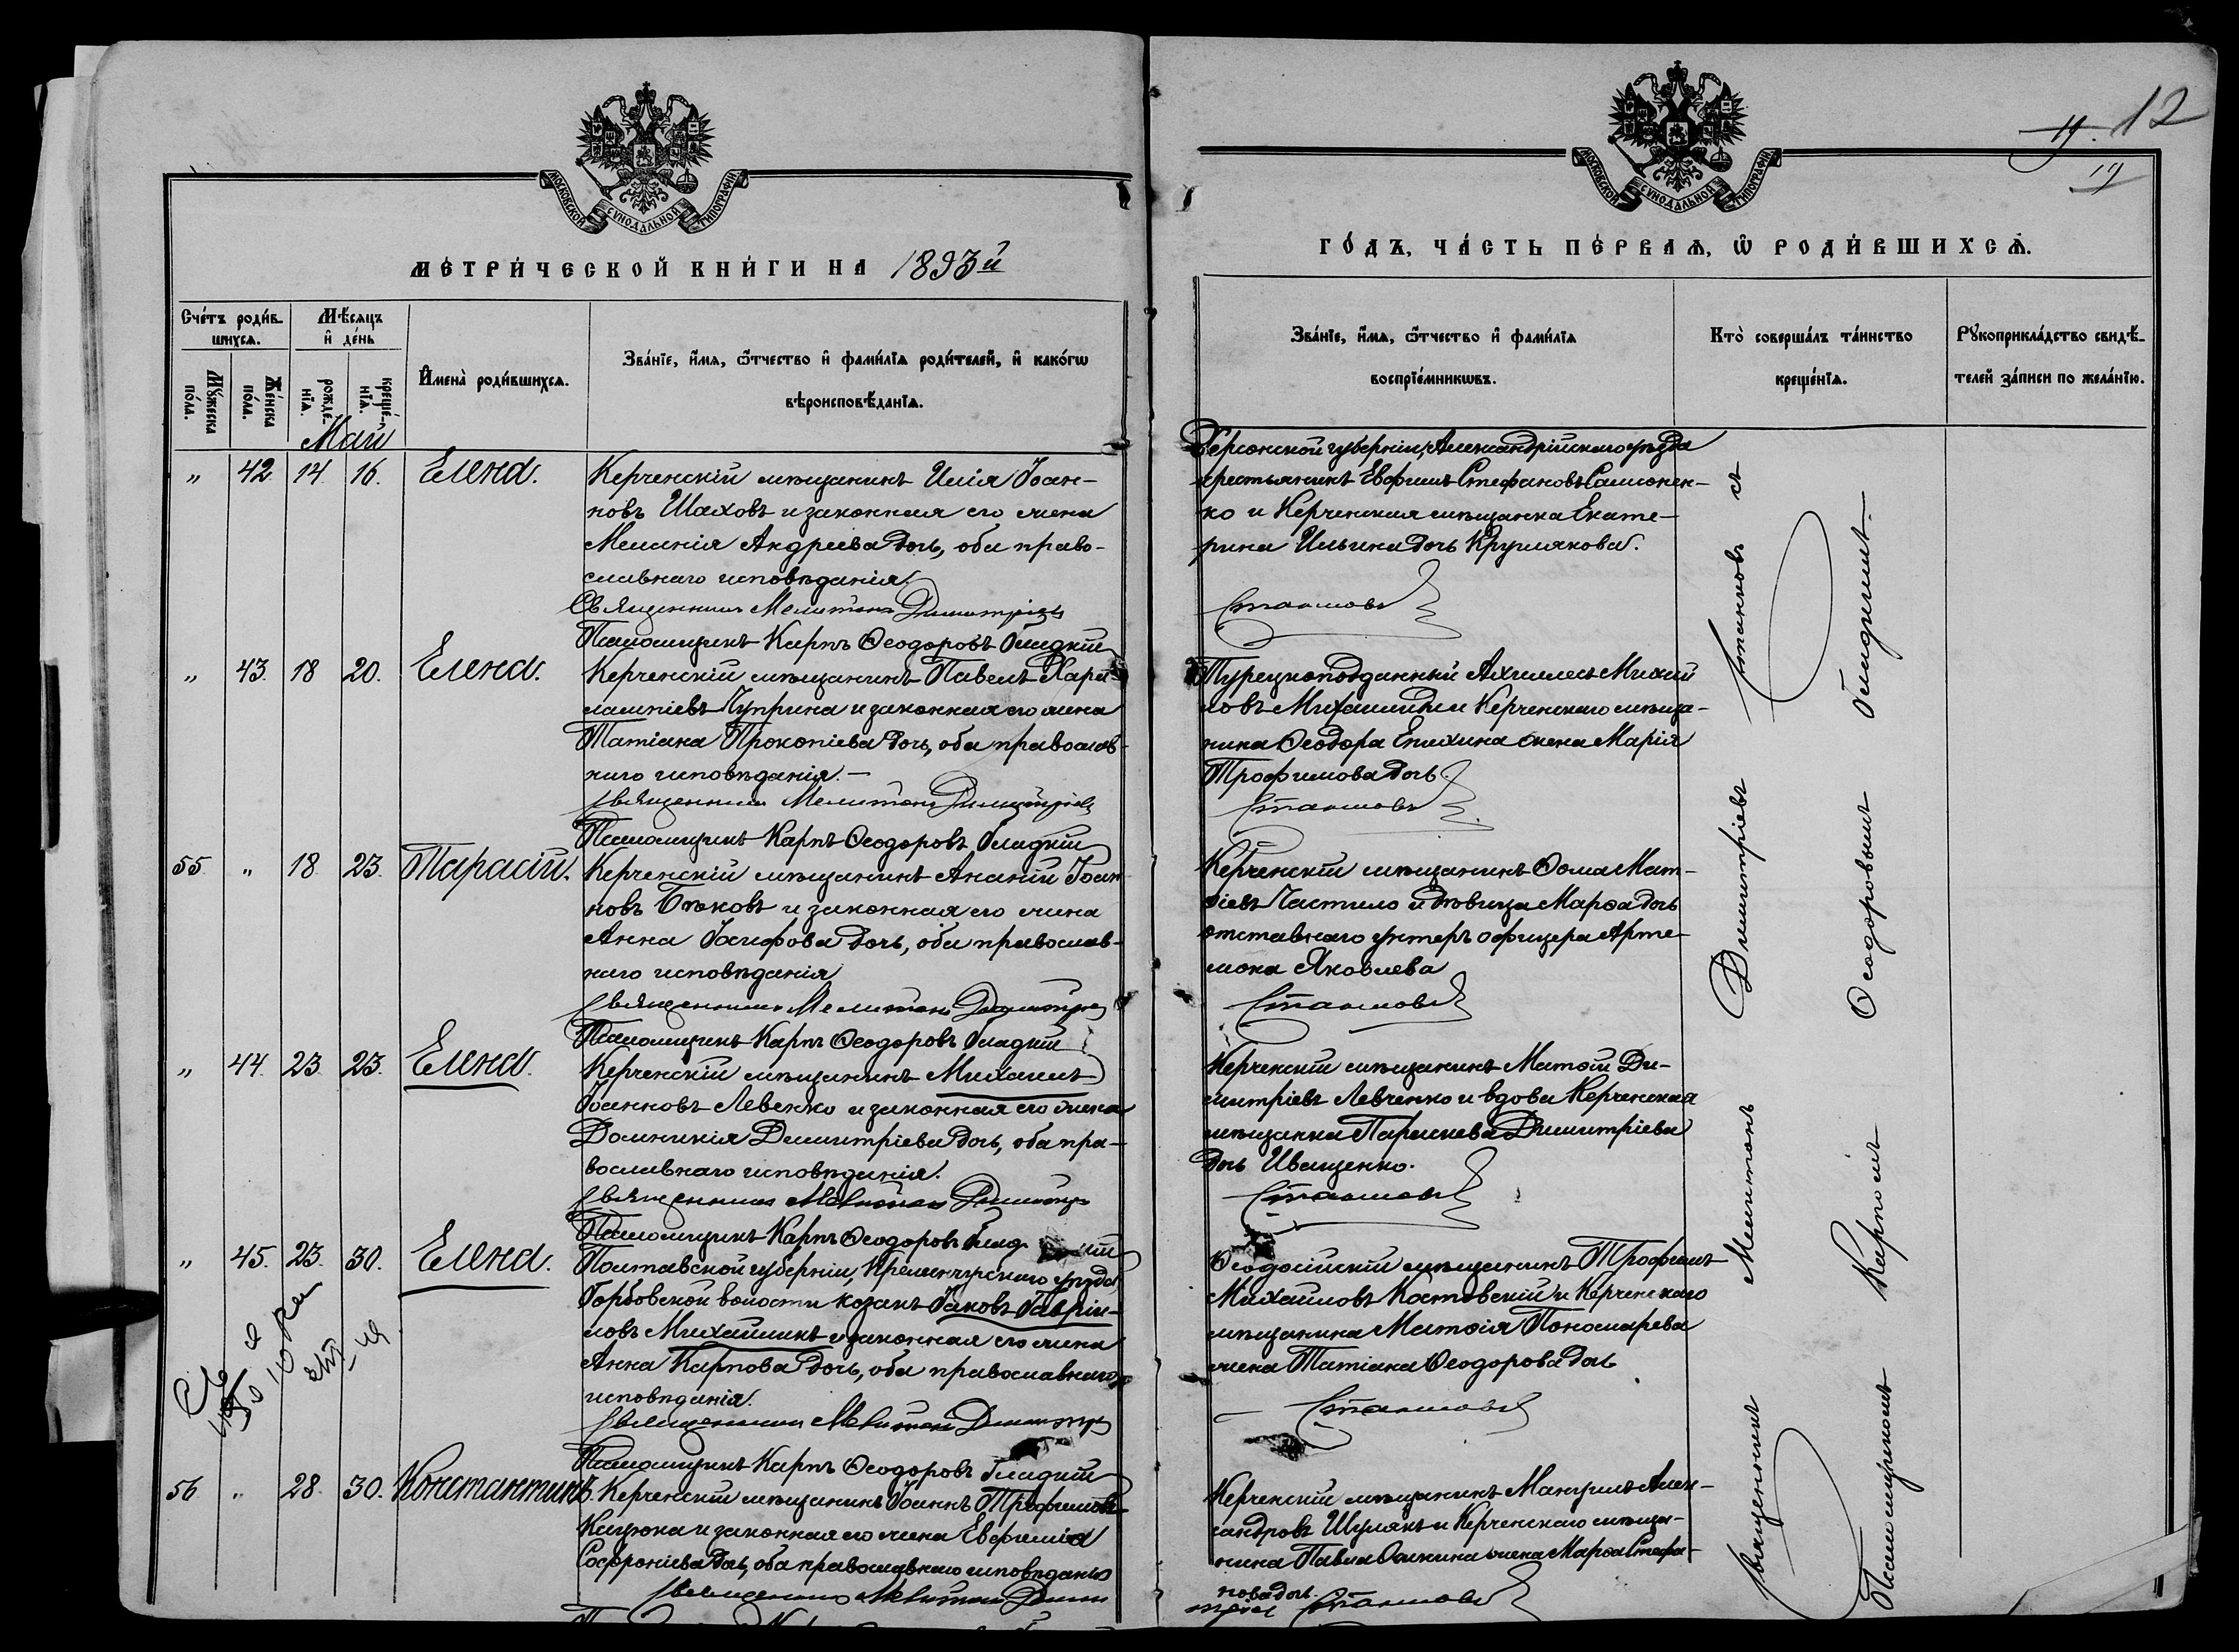 МОСКОВСКОЙ СѴНОДАЛЬНОЙ ТИПОГРАФІИ
МЕТРИЧЕСКОЙ КНИГИ НА 1893й
Счетъ родившихся.
Мѣсяцъ и день
Мужеска пола.
Женска пола.
рожденія.
крещенія.
Имена родившихся.
Званіе, имя, отчество и фамилія родителей, и какого
вѣроисповѣданія.
Май
" 42 14 16. Елена.
Керченскій мѣщанинъ Илія Іоан-
новъ Шаховъ и законная его жена
Меланія Андреева дочь, оба право-
славнаго исповѣданія.
Священникъ Мелитонъ Димитріевъ
Псаломщикъ Карпъ Ѳеодоровъ Гладкій
" 43. 18 20. Елена.
Керченскій мѣщанинъ Павелъ Хара-
лампіевъ Чуприна и законная его жена
Татіана Прокопіева дочь, оба православ-
наго исповѣданія.—
Священникъ Мелитонъ Димитріевъ
Псаломщикъ Карпъ Ѳеодоровъ Гладкій
55. " 18 23. Тарасій.
Керченскій мѣщанинъ Ананій Іоан-
новъ Быковъ и законная его жена
Анна Іосифова дочь, оба православ-
наго исповѣданія
Священникъ Мелитонъ
Псаломщикъ Карпъ Ѳеодоровъ Гладкій
" 44. 23. 23. Елена.
Керченскій мѣщанинъ Михаилъ
Іоанновъ Левенко и законная его жена
Домникія Димитріева дочь, оба пра-
вославнаго исповѣданія.
Священникъ Мелитонъ
Псаломщикъ Карпъ Ѳеодоровъ
" 45. 23. 30. Елена.
Полтавской губерніи, Кременчугскаго уѣзда
Горбовской волости козакъ Іаковъ Гаврі-
ловъ Михайликъ и законная его жена
Анна Карпова дочь, оба православнаго
исповѣданія.
Священникъ Мелитонъ
Псаломщикъ Карпъ Ѳеодоровъ Гладкій
56 " 28. 30. Константинъ.
Керченскій мѣщанинъ Іоаннъ Трофимовъ
и законная его жена Евфимія
Софроніева дочь, оба православнаго исповѣданія
Священникъ Мелитонъ
12
МОСКОВСКОЙ СѴНОДАЛЬНОЙ ТИПОГРАФІИ
ГОДЪ, ЧАСТЬ ПЕРВАЯ, Ѡ РОДИВШИХСЯ.
Званіе, имя, отчество и фамилія
воспріемниковъ.
Кто совершалъ таинство
крещенія.
Рукоприкладство свидѣ-
телей записи по желанію.
Херсонской губерніи, Александрійскаго уѣзда
крестьянинъ Евфимъ Стефановъ Самонен-
ко и Керченская мѣщанка Екате-
рина Ильина дочь Круглякова.
Турецкоподданный Ахиллесъ Михаи-
ловъ Михаилиди и Керченскаго мѣща-
нина Ѳеодора Епихина жена Марія
Трофимова дочь
Керченскій мѣщанинъ Ѳома Мат-
ѳіевъ Частило и дѣвица Марѳа дочь
отставнаго унтеръ офицера Арте-
мона Яковлева
Керченскій мѣщанинъ Матѳій Ди-
митріевъ Левченко и вдова Керченская
мѣщанка Параскева Димитріева
дочь Иващенко.
Ѳеодосійскій мѣщанинъ Трофимъ
Михаиловъ Костовскій и Керченскаго
мѣщанина Матѳія Пономарева
жена Татіана Ѳеодорова дочь
Керченскій мѣщанинъ Мануилъ Алек-
сандровъ Шулякъ и Керченскаго мѣща-
нина Павла жена Марѳа Стефа-
нова дочь.
Священникъ Мелитонъ Димитріевъ съ
Псаломщикомъ Карпомъ Ѳеодоровымъ Гладкимъ.